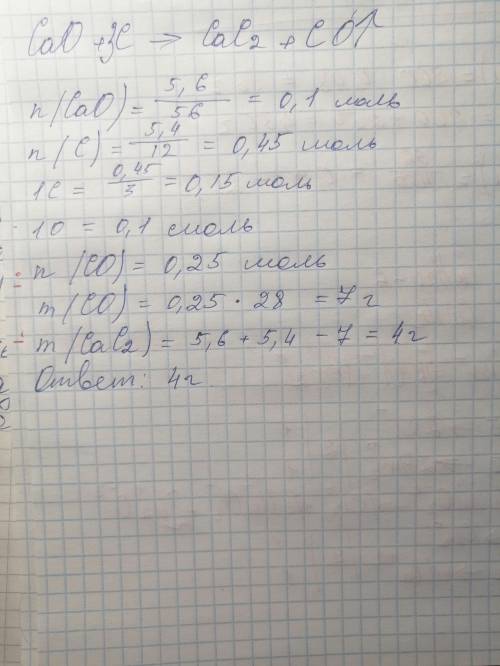 CaO + 3C → CaC₂ + CO↑
n(CaO) = 5,6/56 = 0,1 моль
n(C) = 5,4/12 = 0,45 моль
1C = 0,45/3 = 0,15 моль
1O = 0,1 смоль
n(CO) = 0,25 моль
m(CO) = 0,25 · 28 = 7 г
m(CaC₂) = 5,6 + 5,4 - 7 = 4г
Ответ: 4г